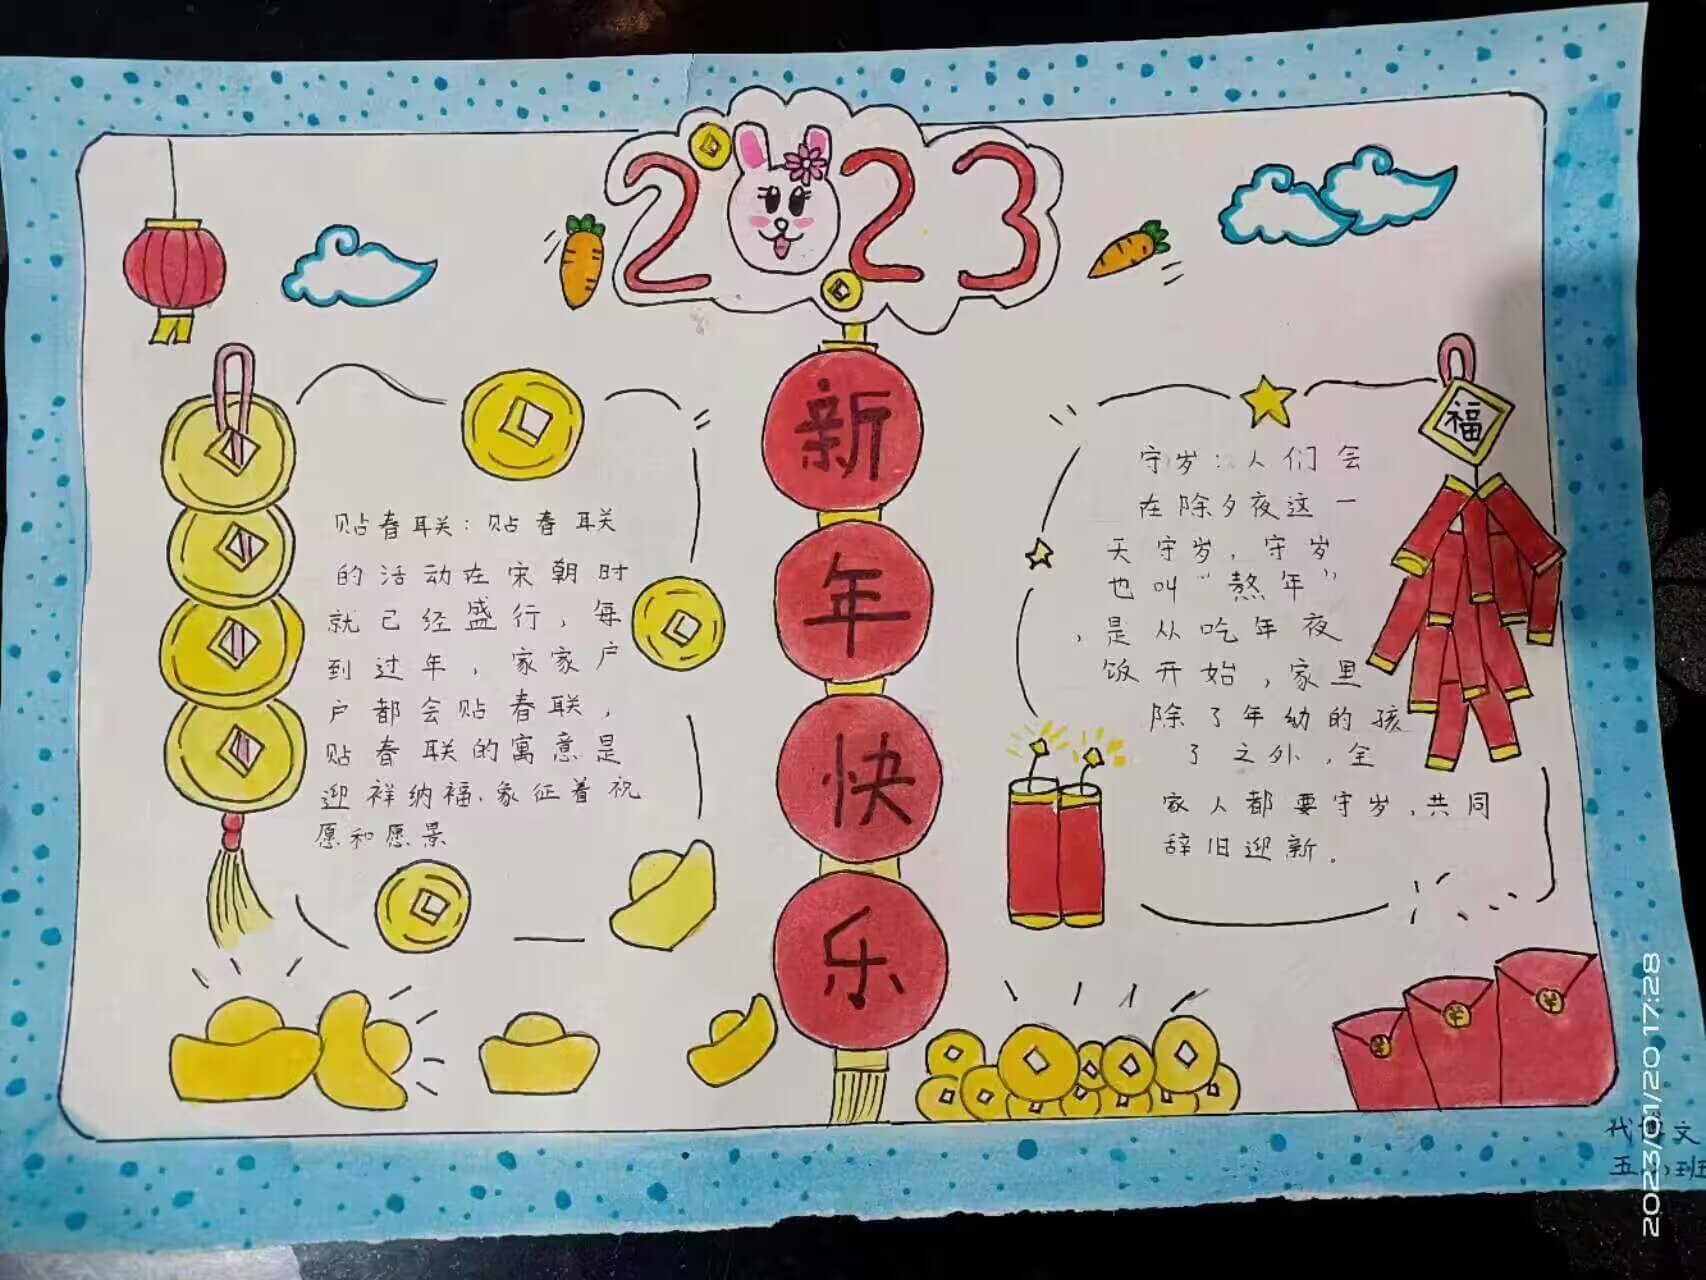 2023
新
年
快
乐
福
贴春联：贴春联
的活动在宋朝时
就已经盛行，每
到过年，家家户
户都会贴春联，
贴春联的寓意是
迎祥纳福、象征着祝
愿和愿景
守岁：人们会
在除夕夜这一
天守岁，守岁
也叫“熬年”
，是从吃年夜
饭开始，家里
除了年幼的孩
了之外，全
家人都要守岁，共同
辞旧迎新。
2023/01/20 17:28